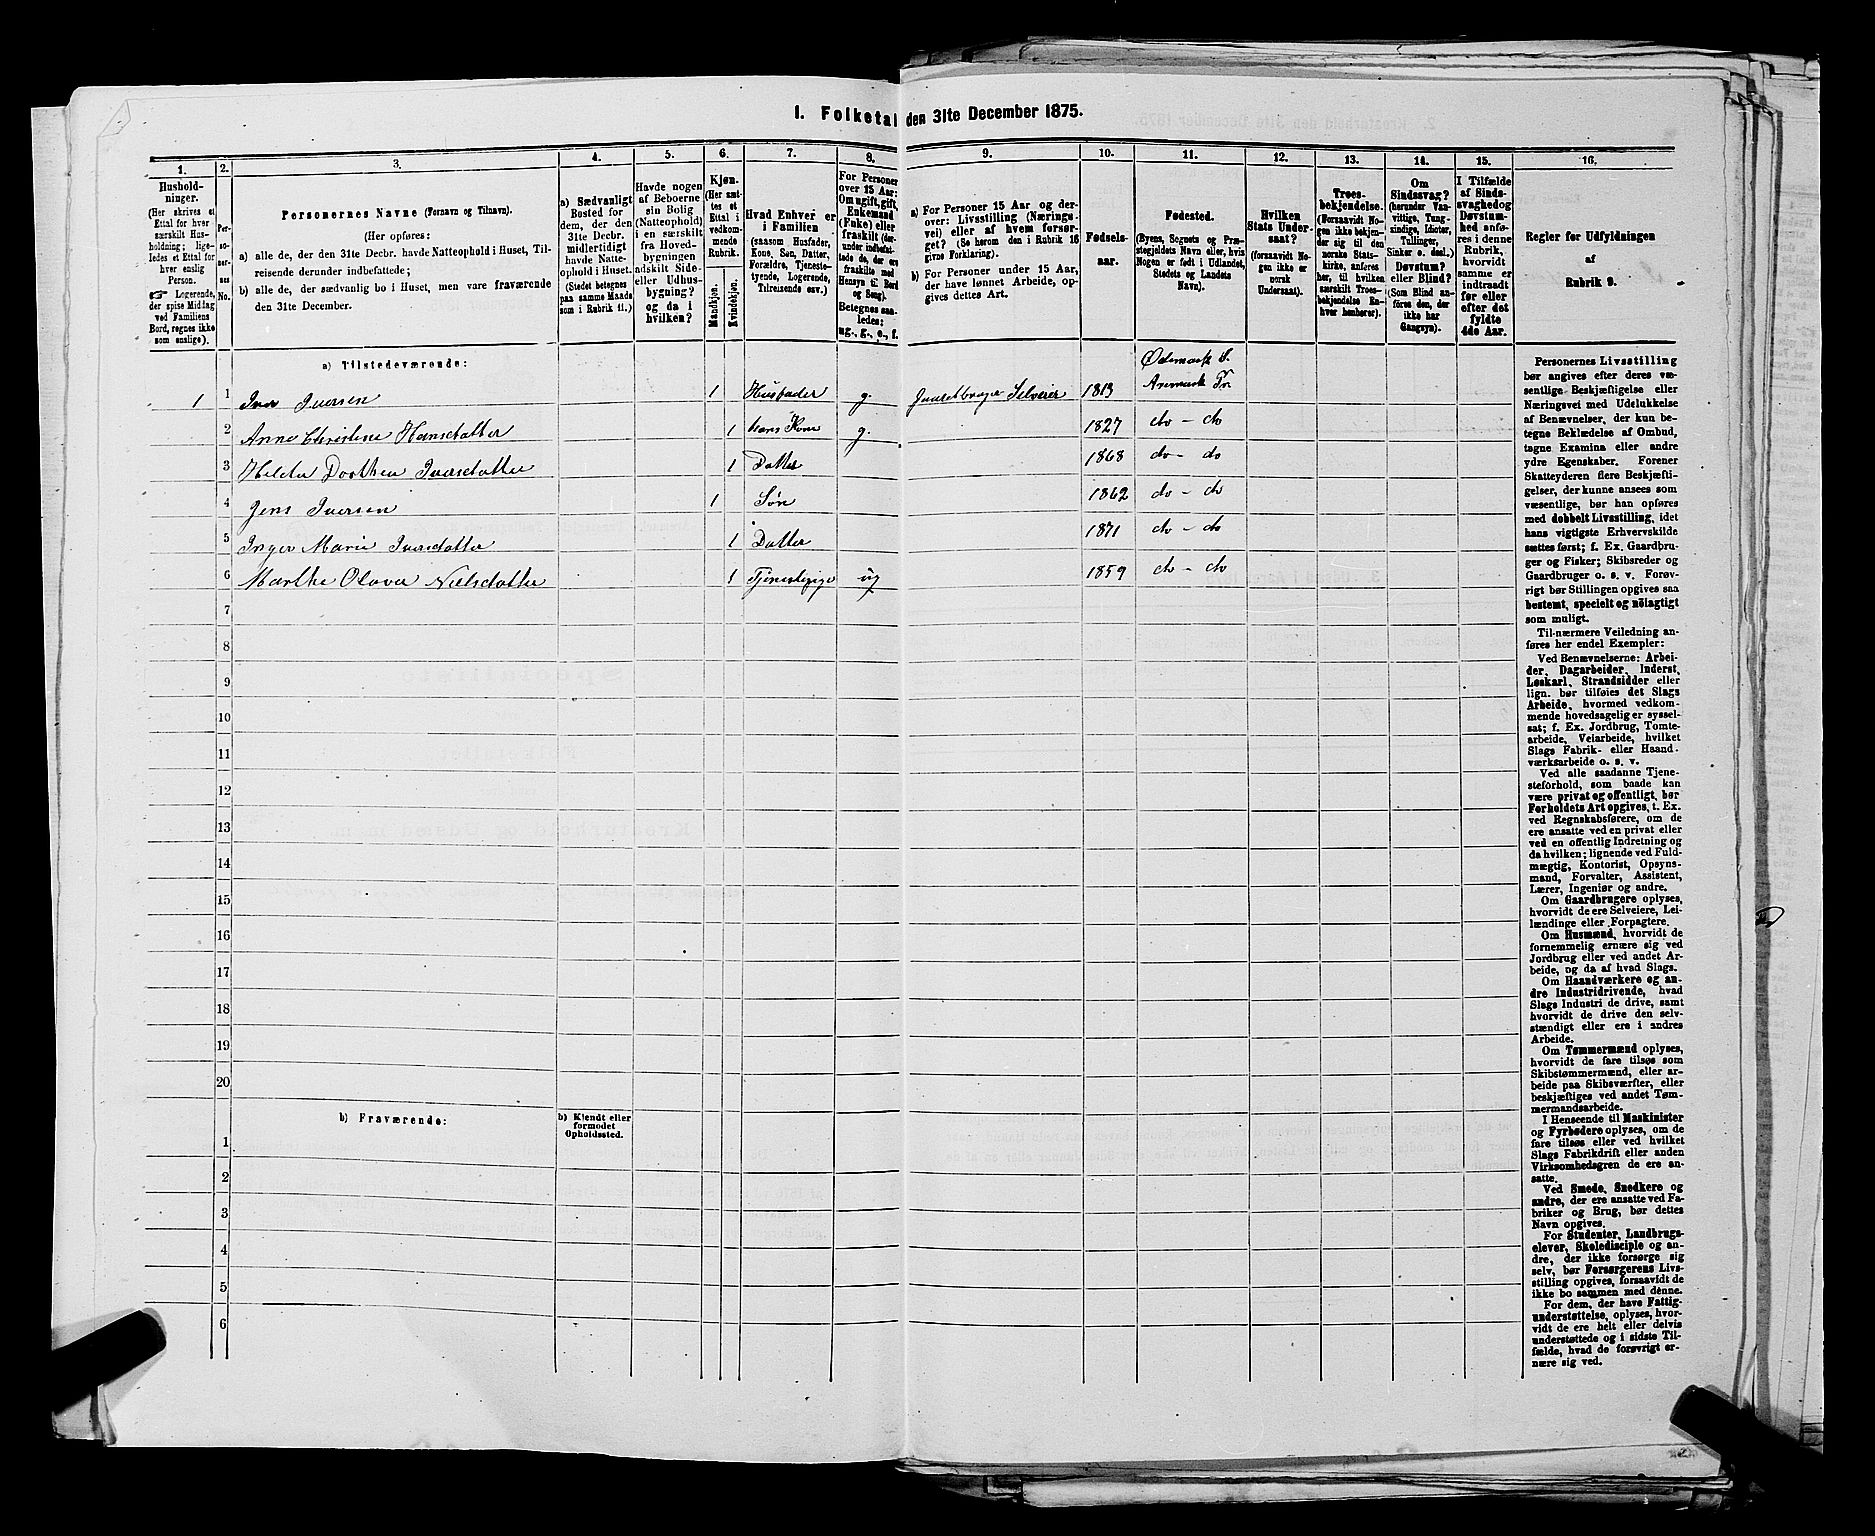 1. Folketal den 31te December 1875.
1. 2. 3. 4. 5. 6. 7. 8. 9. 10. 11. 12. 13. 14. 15. 16.
Hushold-
ninger.
(Her skrives et
Ettal for hver
særskilt Hus-
holdning; lige-
ledes et Ettal for
hver enslig
Person.
☞ Logerende,
der spise Middag
ved Familiens
Bord, regnes ikke
som enslige).
Per-
so-
ner-
nes
No.
Personernes Navne (Fornavn og Tilnavn).
(Her opføres:
a) alle de, der den 31te Decbr. havde Natteophold i Huset, Til-
reisende derunder indbefattede;
b) alle de, der sædvanlig bo i Huset, men vare fraværende
den 31te December.
a) Sædvanligt
Bosted for
dem, der den
31te Decbr.
midlertidigt
havde Natte-
ophold i Huset.
(Stedet betegnes
paa samme Maade
som i Rubrik 11.)
Havde nogen
af Beboerne
sin Bolig
(Natteophold)
i en særskilt
fra Hoved-
bygningen
adskilt Side-
eller Udhus-
bygning?
og da i
hvilken?
Kjøn.
(Her sæt-
tes et
Ettal i
vedkom-
mende
Rubrik.
Mandkjøn.
Kvindekjøn.
Hvad Enhver er
i Familien
(saasom Husfader,
Kone, Søn, Datter,
Forældre, Tjeneste-
tyende, Logerende,
Tilreisende osv.)
For Personer
over 15 Aar:
Om ugift, gift,
Enkemand
(Enke) eller
fraskilt (der-
under indbefat-
tede de, der ere
fraskilte med
Hensyn til Bord
og Seng).
Betegnes saa-
ledes:
ug., g., e., f.
a) For Personer 15 Aar og der-
over: Livsstilling (Nærings-
vei) eller af hvem forsør-
get? (Se herom den i Rubrik 16
givne Forklaring).
b) For Personer under 15 Aar,
der have lønnet Arbeide, op-
gives dettes Art.
Fødsels-
aar.
Fødested.
(Byens, Sognets og Præ-
stegjeldets Navn eller, hvis
Nogen er født i Udlandet,
Stedets og Landets
Navn).
Hvilken
Stats Under-
saat?
(forsaavidt No-
gen ikke er
norsk
Undersaat).
Troes-
bekjendelse.
(Forsaavidt No-
gen ikke bekjen-
der sig til den
norske Stats-
kirke, anføres
her, til hvilken
særskilt Troes-
bekjendelse En-
hver henhører).
Om
Sindssvag?
(herunder Van-
vittige, Tung-
sindige, Idioter,
Tullinger,
Sinker o. desl.)
Døvstum?
eller Blind?
(Som Blind an-
føres den, der
ikke har
Gangsyn).
I Tilfælde
af Sinds-
svaghed og
Døvstum-
hed anfø-
res i denne
Rubrik,
hvorvidt
samme er
indtraadt
før eller
efter det
fyldte
4de Aar.
Regler for Udfyldningen
af
Rubrik 9.
a) Tilstedeværende:
1 1 Iver Iversen 1 Husfader g. Gaardbruger Selveier 1813 Ødemark S. Aremark Pr.
2 Anne Christine Hansdatter 1 hans Kone g. 1827 do – do
3 Helder Dorthea Iversdatter 1 Datter 1868 do – do
4 Jens Iversen 1 Søn 1862 do – do
5 Inger Marie Iversdatter 1 Datter 1871 do – do
6 Marthe Olava Nielsdatter 1 Tjenestepige ug 1859 do – do
7
8
9
10
11
12
13
14
15
16
17
18
19
20
b) Fraværende: b) Kjendt eller
formodet
Opholdssted.
1
2
3
4
5
6
Personernes Livsstilling
bør angives efter deres væ-
sentlige Beskjæftigelse eller
Næringsvei med Udelukkelse
af Benævnelser, der kun be-
tegne Beklædelse af Ombud,
tagne Examina eller andre
ydre Egenskaber. Forener
Skatteyderen flere Beskjæfti-
gelser, der kunne ansees som
væsentlige, bør han opføres
med dobbelt Livsstilling, idet
hans vigtigste Erhvervskilde
sættes først; f. Ex. Gaardbru-
ger og Fisker; Skibsreder og
Gaardbruger o. s. v. Forøv-
rigt bør Stillingen opgives saa
bestemt, specielt og nöiagtigt
som muligt.
Til nærmere Veiledning an-
føres her endel Exempler:
Ved Benævnelserne: Arbei-
der, Dagarbeider, Inderst,
Løskarl, Strandsidder eller
lign. bør tilføies det Slags
Arbeide, hvormed vedkom-
mende hovedsagelig er syssel-
sat; f. Ex. Jordbrug, Tomte-
arbeide, Veiarbeide, hvilket
Slags Fabrik- eller Haand-
værksarbeide o. s. v.
Ved alle saadanne Tjene-
steforhold, som baade kan
være privat og offentligt, bør
Forholdets Art opgives, t. Ex.
ved Regnskabsførere, om de
ere ansatte ved en privat eller
ved en offentlig Indretning og
da hvilken; lignende ved Fuld-
mægtig, Kontorist, Opsyns-
mand, Forvalter, Assistent,
Lærer, Ingeniør og andre.
Om Gaardbrugere oplyses,
hvorvidt de ere Selveiere, Lei-
lændinge eller Forpagtere.
Om Husmænd, hvorvidt de
fornemmelig ernære sig ved
Jordbrug eller ved andet Ar-
beide, og da af hvad Slags.
Om Haandværkere og an-
dre Industridrivende, hvad
Slags Industri de drive, samt
hvorvidt de drive den selv-
stændigt eller ere i andres
Arbeide.
Om Tømmermænd oplyses,
hvorvidt de fare tilsøs som
Skibstømmermænd, eller ar-
beide paa Skibsværfter, eller
beskjæftiges ved andet Tøm-
mermandsarbeide.
I Henseende til Maskinister
og Fyrbødere oplyses, om de
fare tilsøs eller ved hvilket
Slags Fabrikdrift eller anden
Virksomhedsgren de ere an-
satte.
Ved Smede, Snedkere og
andre, der ere ansatte ved Fa-
briker og Brug, bør dettes
Navn opgives.
For Studenter, Landbrugs-
elever, Skoledisciple og an-
dre, der ikke forsørge sig
selv, bør Forsørgerens Livs-
stilling opgives, forsaavidt de
ikke bo sammen med denne.
For dem, der have Fattig-
understøttelse, oplyses, hvor-
vidt de ere helt eller delvis
understøttede og i sidste Til-
fælde, hvad de forøvrigt er-
nære sig ved.